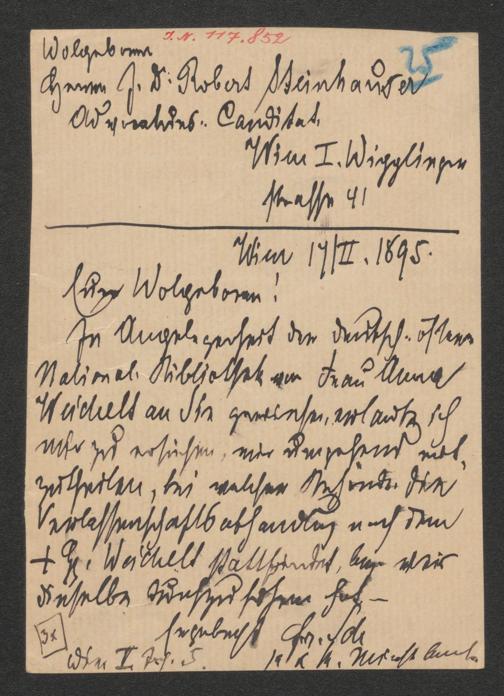 I.N. 117.852
25
Wolgeboren
Herrn J. Dr. Robert Steinhauser
Advocaturs-Candidat
Wien I. Wipplinger
strasse 41
Wien 17/II. 1895.
Euer Wolgeboren!
In Angelegenheit der deutsch-österr
National-Bibliothek von Frau Anna
Weichelt an Sie gewiesen, erlaube ich
mir zu ersuchen, mir umgehend mit-
zutheilen, bei welcher Behörde die
Verlassenschaftsabhandlung nach dem
+ H. Weichelt stattfindet, bzw wer
dieselbe durchzuführen hat –
Ergebenst
Wien
k. k.